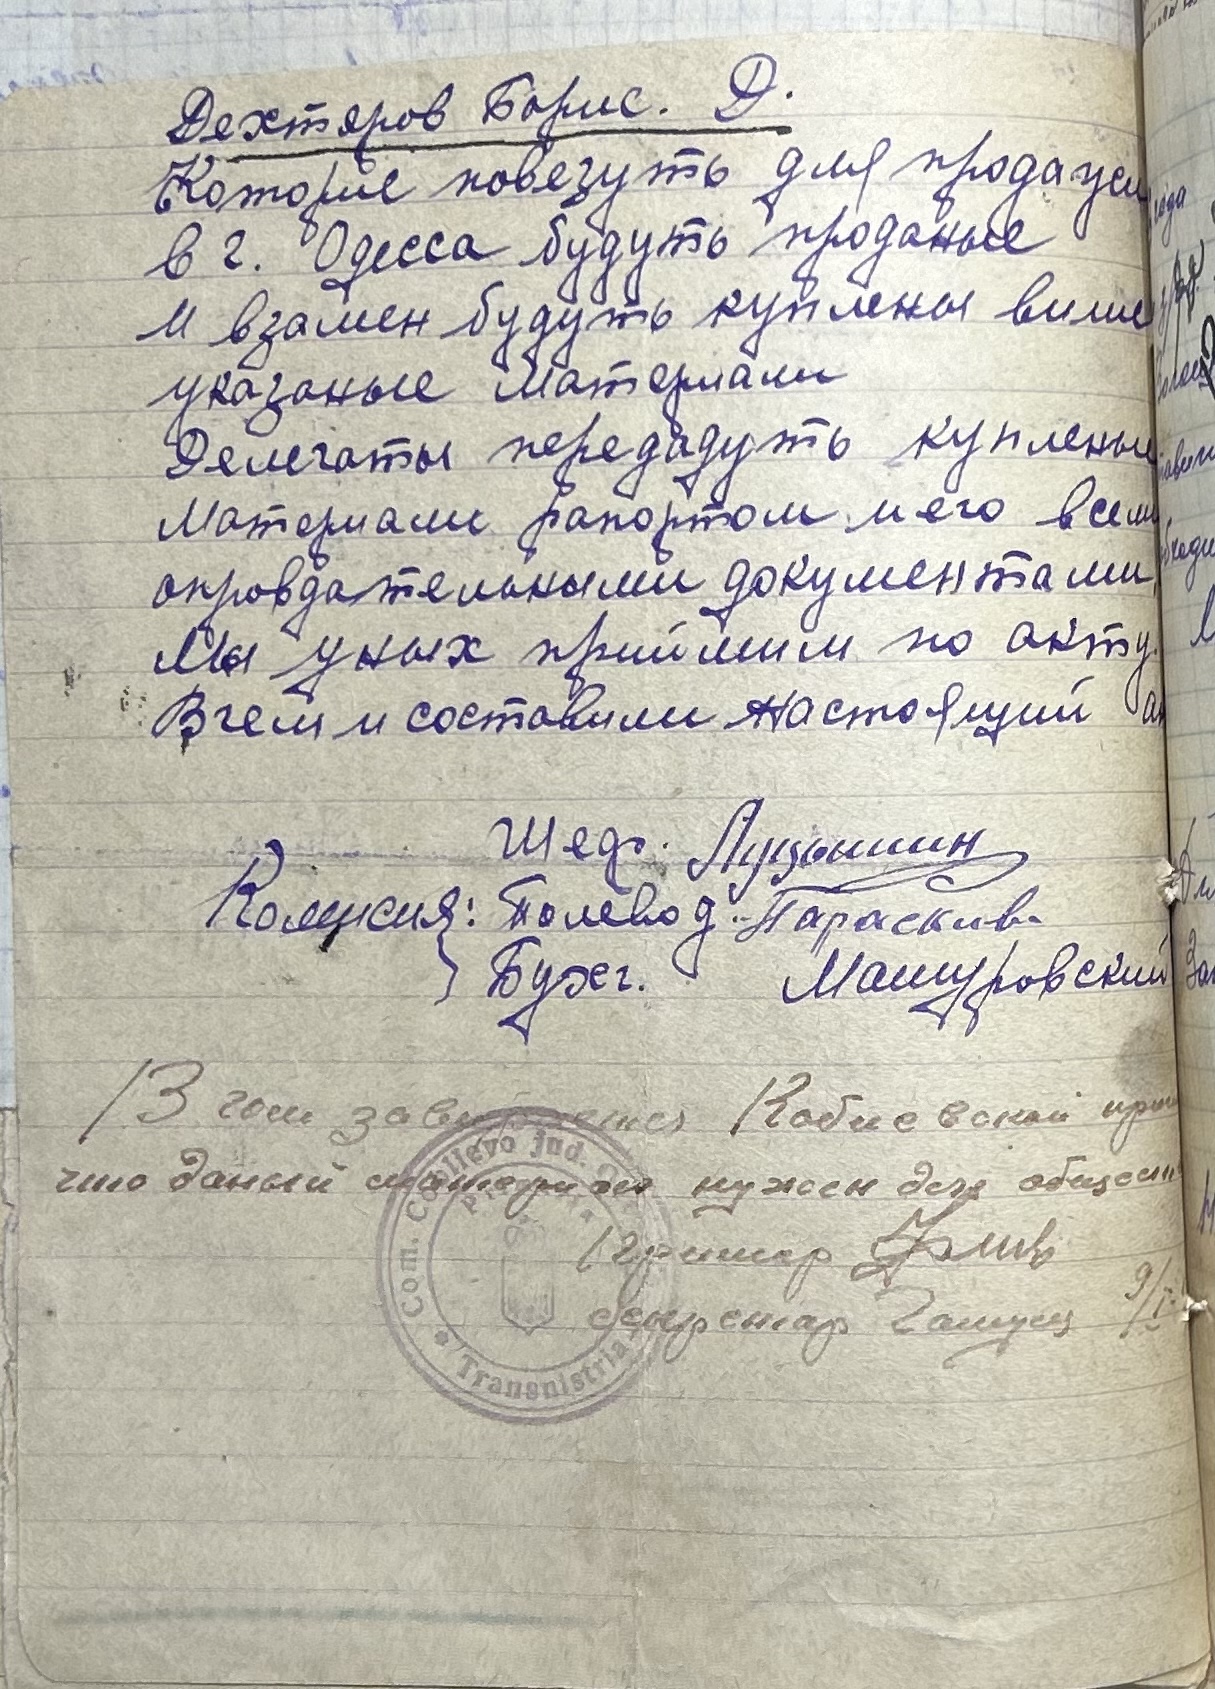 Дехтяров Борис. Д.
Которые повезуть для продажи
в г. Одесса будуть проданые
и взамен будуть куплены више
указаные материали
Делегаты передадуть купленые
материали рапортом и его всеми
оправдательными документами,
Мы уных приймим по акту.
Вчем и составили настоящий ак
Шеф. Луцышин
Комисия: Полевод. Параскив
Бухг. Машуровский
В чом завиряется Кобиевской при
что даный материал нужен для общест
Примар
секретар 9/I
Com. Cobilevo jud.
Transnistria